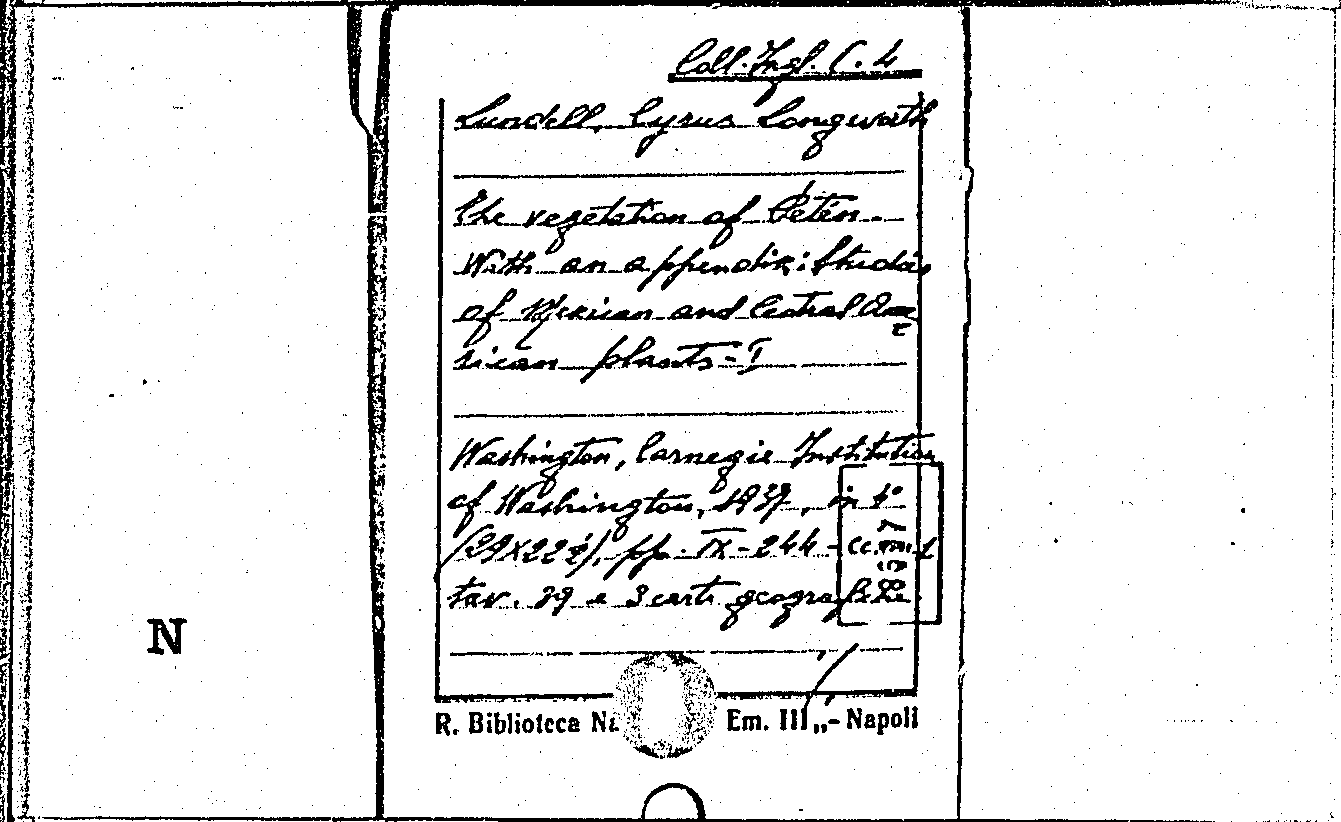 Coll. Ingl. C. 4
Lundell, Cyrus Longworth
The vegetation of Petén.
With an appendix: Studies
of Mexican and Central Ame
rican plants-I
Washington, Carnegie Institution
of Washington, 1937, in 4°
(29X22½), pp. IX-244 - con 1
tav. 39 e 3 carte geografiche.
N
R. Biblioteca Na Em. III„- Napoli